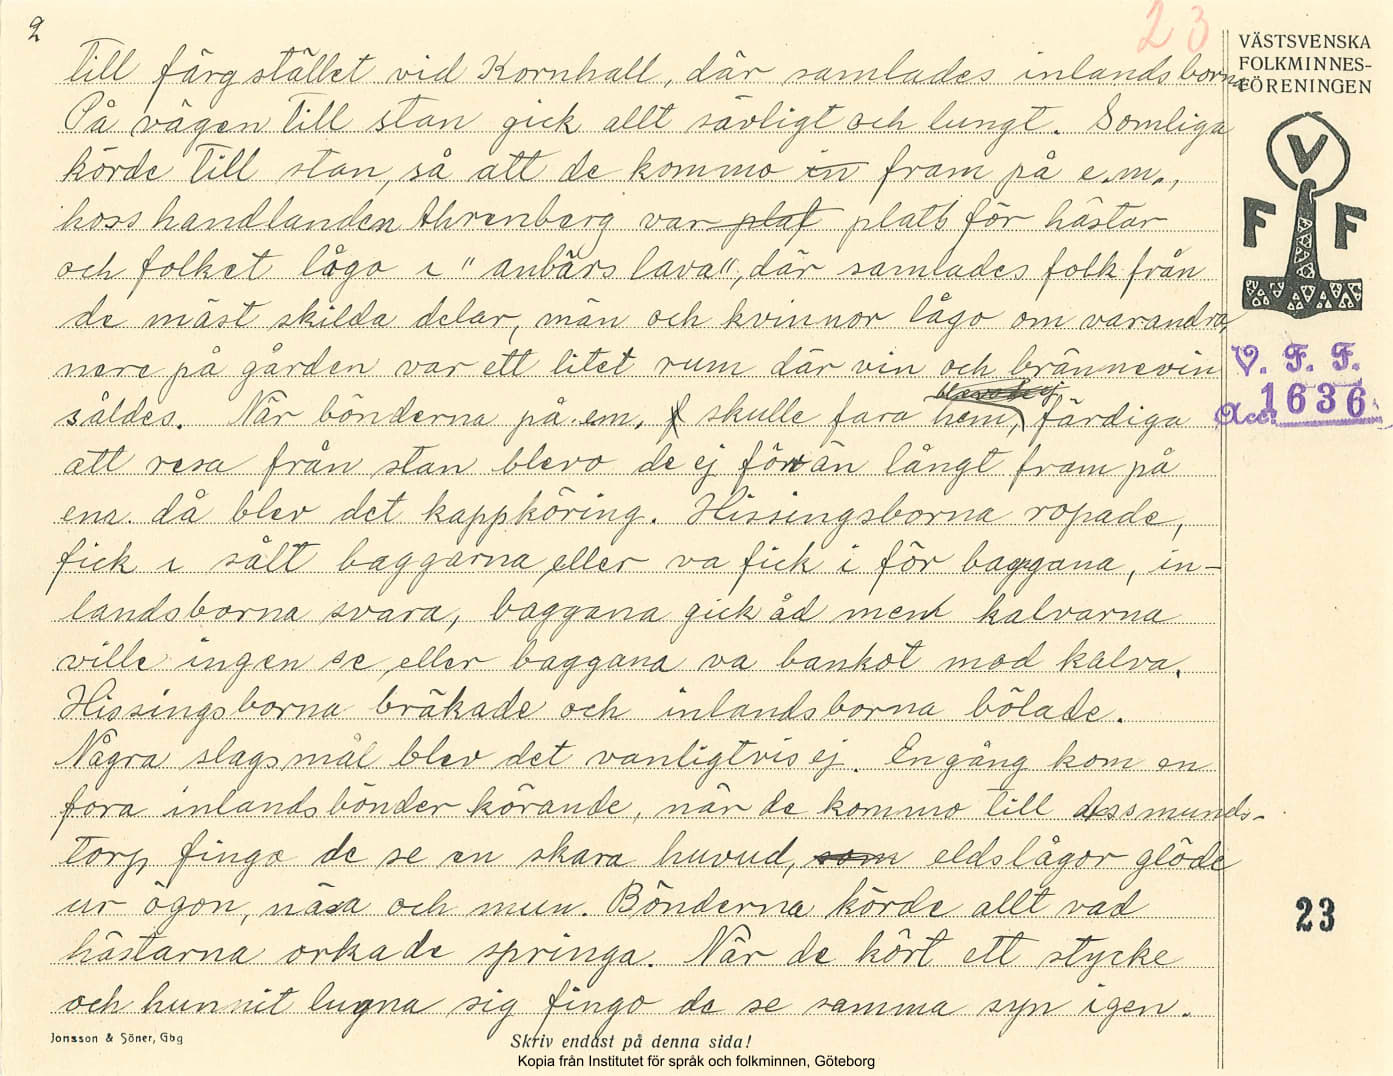 2
23
VÄSTSVENSKA
FOLKMINNES-
FÖRENINGEN
V
F F
V. F. F.
Acc. 1636
till färgstället vid Kornhall, där samlades inlandsborna
På vägen till stan gick allt sävligt och lungt. Somliga
körde till stan, så att de kommo in fram på e.m.,
hoss handlanden Ahrenberg var plat plats för hästar
och folket lågo i "anbärs lava", där samlades folk från
de mäst skilda delar, män och kvinnor lågo om varandra,
nere på gården var ett litet rum där vin och brännevin
såldes. När bönderna på em. f skulle fara hem, färdiga
att resa från stan blevo de ej förrän långt fram på
em. då blev det kappköring. Hissingsborna ropade,
fick i sålt baggarna eller va fick i för baggana, in-
landsborna svara, baggana gick åd men kalvarna
ville ingen se, eller baggana va bankot mod kalva.
Hissingsborna bräkade och inlandsborna bölade.
Några slagsmål blev det vanligtvis ej. En gång kom en
fora inlandsbönder körande, när de kommo till Assmunds-
torp fingo de se en skara huvud, som eldslågor glöde
ur ögon, näsa och mun. Bönderna körde allt vad
hästarna orkade springa. När de kört ett stycke
och hunnit lugna sig fingo de se samma syn igen.
23
Jonsson & Söner, Gbg
Skriv endast på denna sida!
Kopia från Institutet för språk och folkminnen, Göteborg